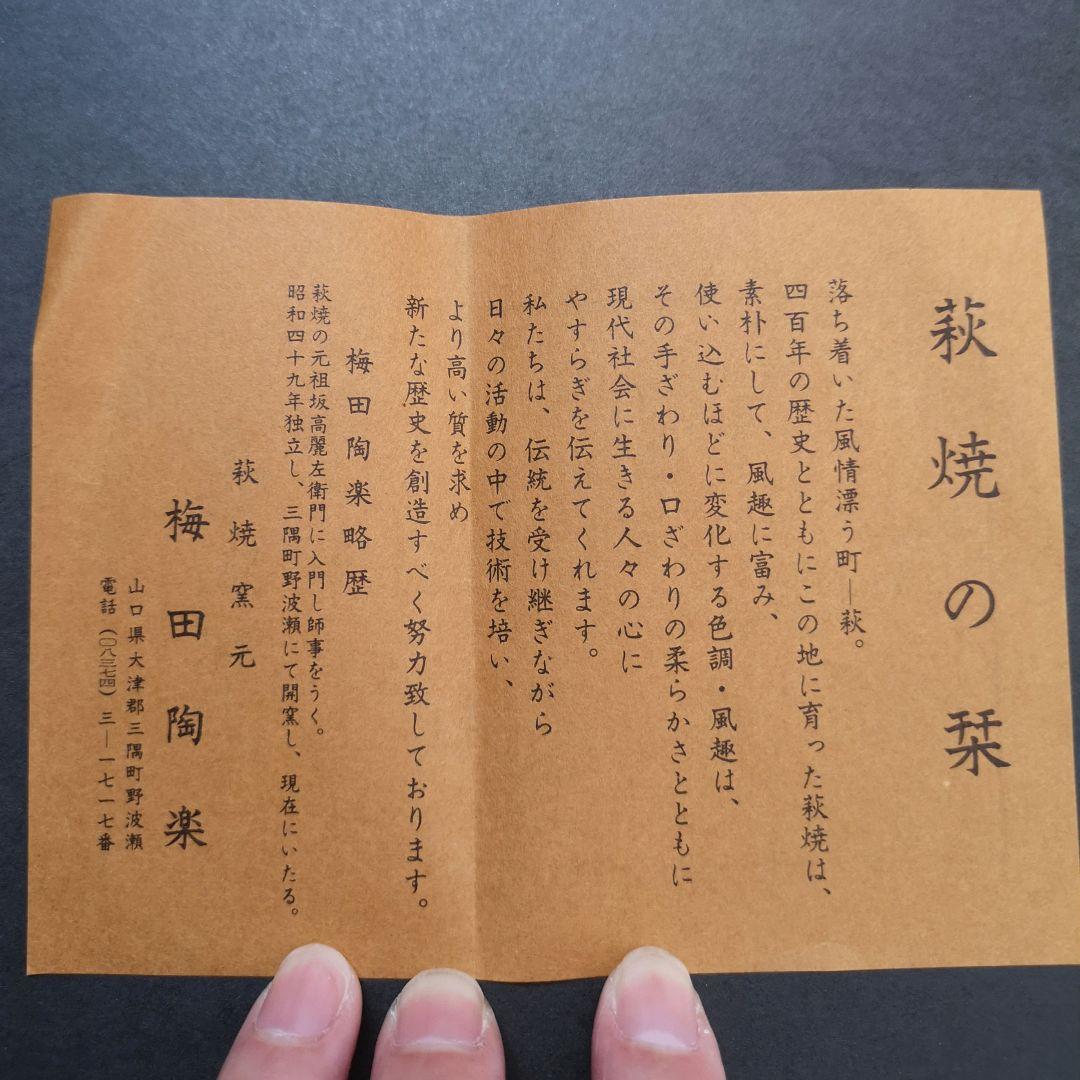 萩焼の栞
落ち着いた風情漂う町―萩。
四百年の歴史とともにこの地に育った萩焼は、
素朴にして、風趣に富み、
使い込むほどに変化する色調・風趣は、
その手ざわり・口ざわりの柔らかさとともに
現代社会に生きる人々の心に
やすらぎを伝えてくれます。
私たちは、伝統を受け継ぎながら
日々の活動の中で技術を培い、
より高い質を求め
新たな歴史を創造すべく努力致しております。
梅田陶楽略歴
萩焼の元祖坂高麗左衛門に入門し師事をうく。
昭和四十九年独立し、三隅町野波瀬にて開窯し、現在にいたる。
萩焼窯元
梅田陶楽
山口県大津郡三隅町野波瀬
電話(〇八三七四)三―一七一七番